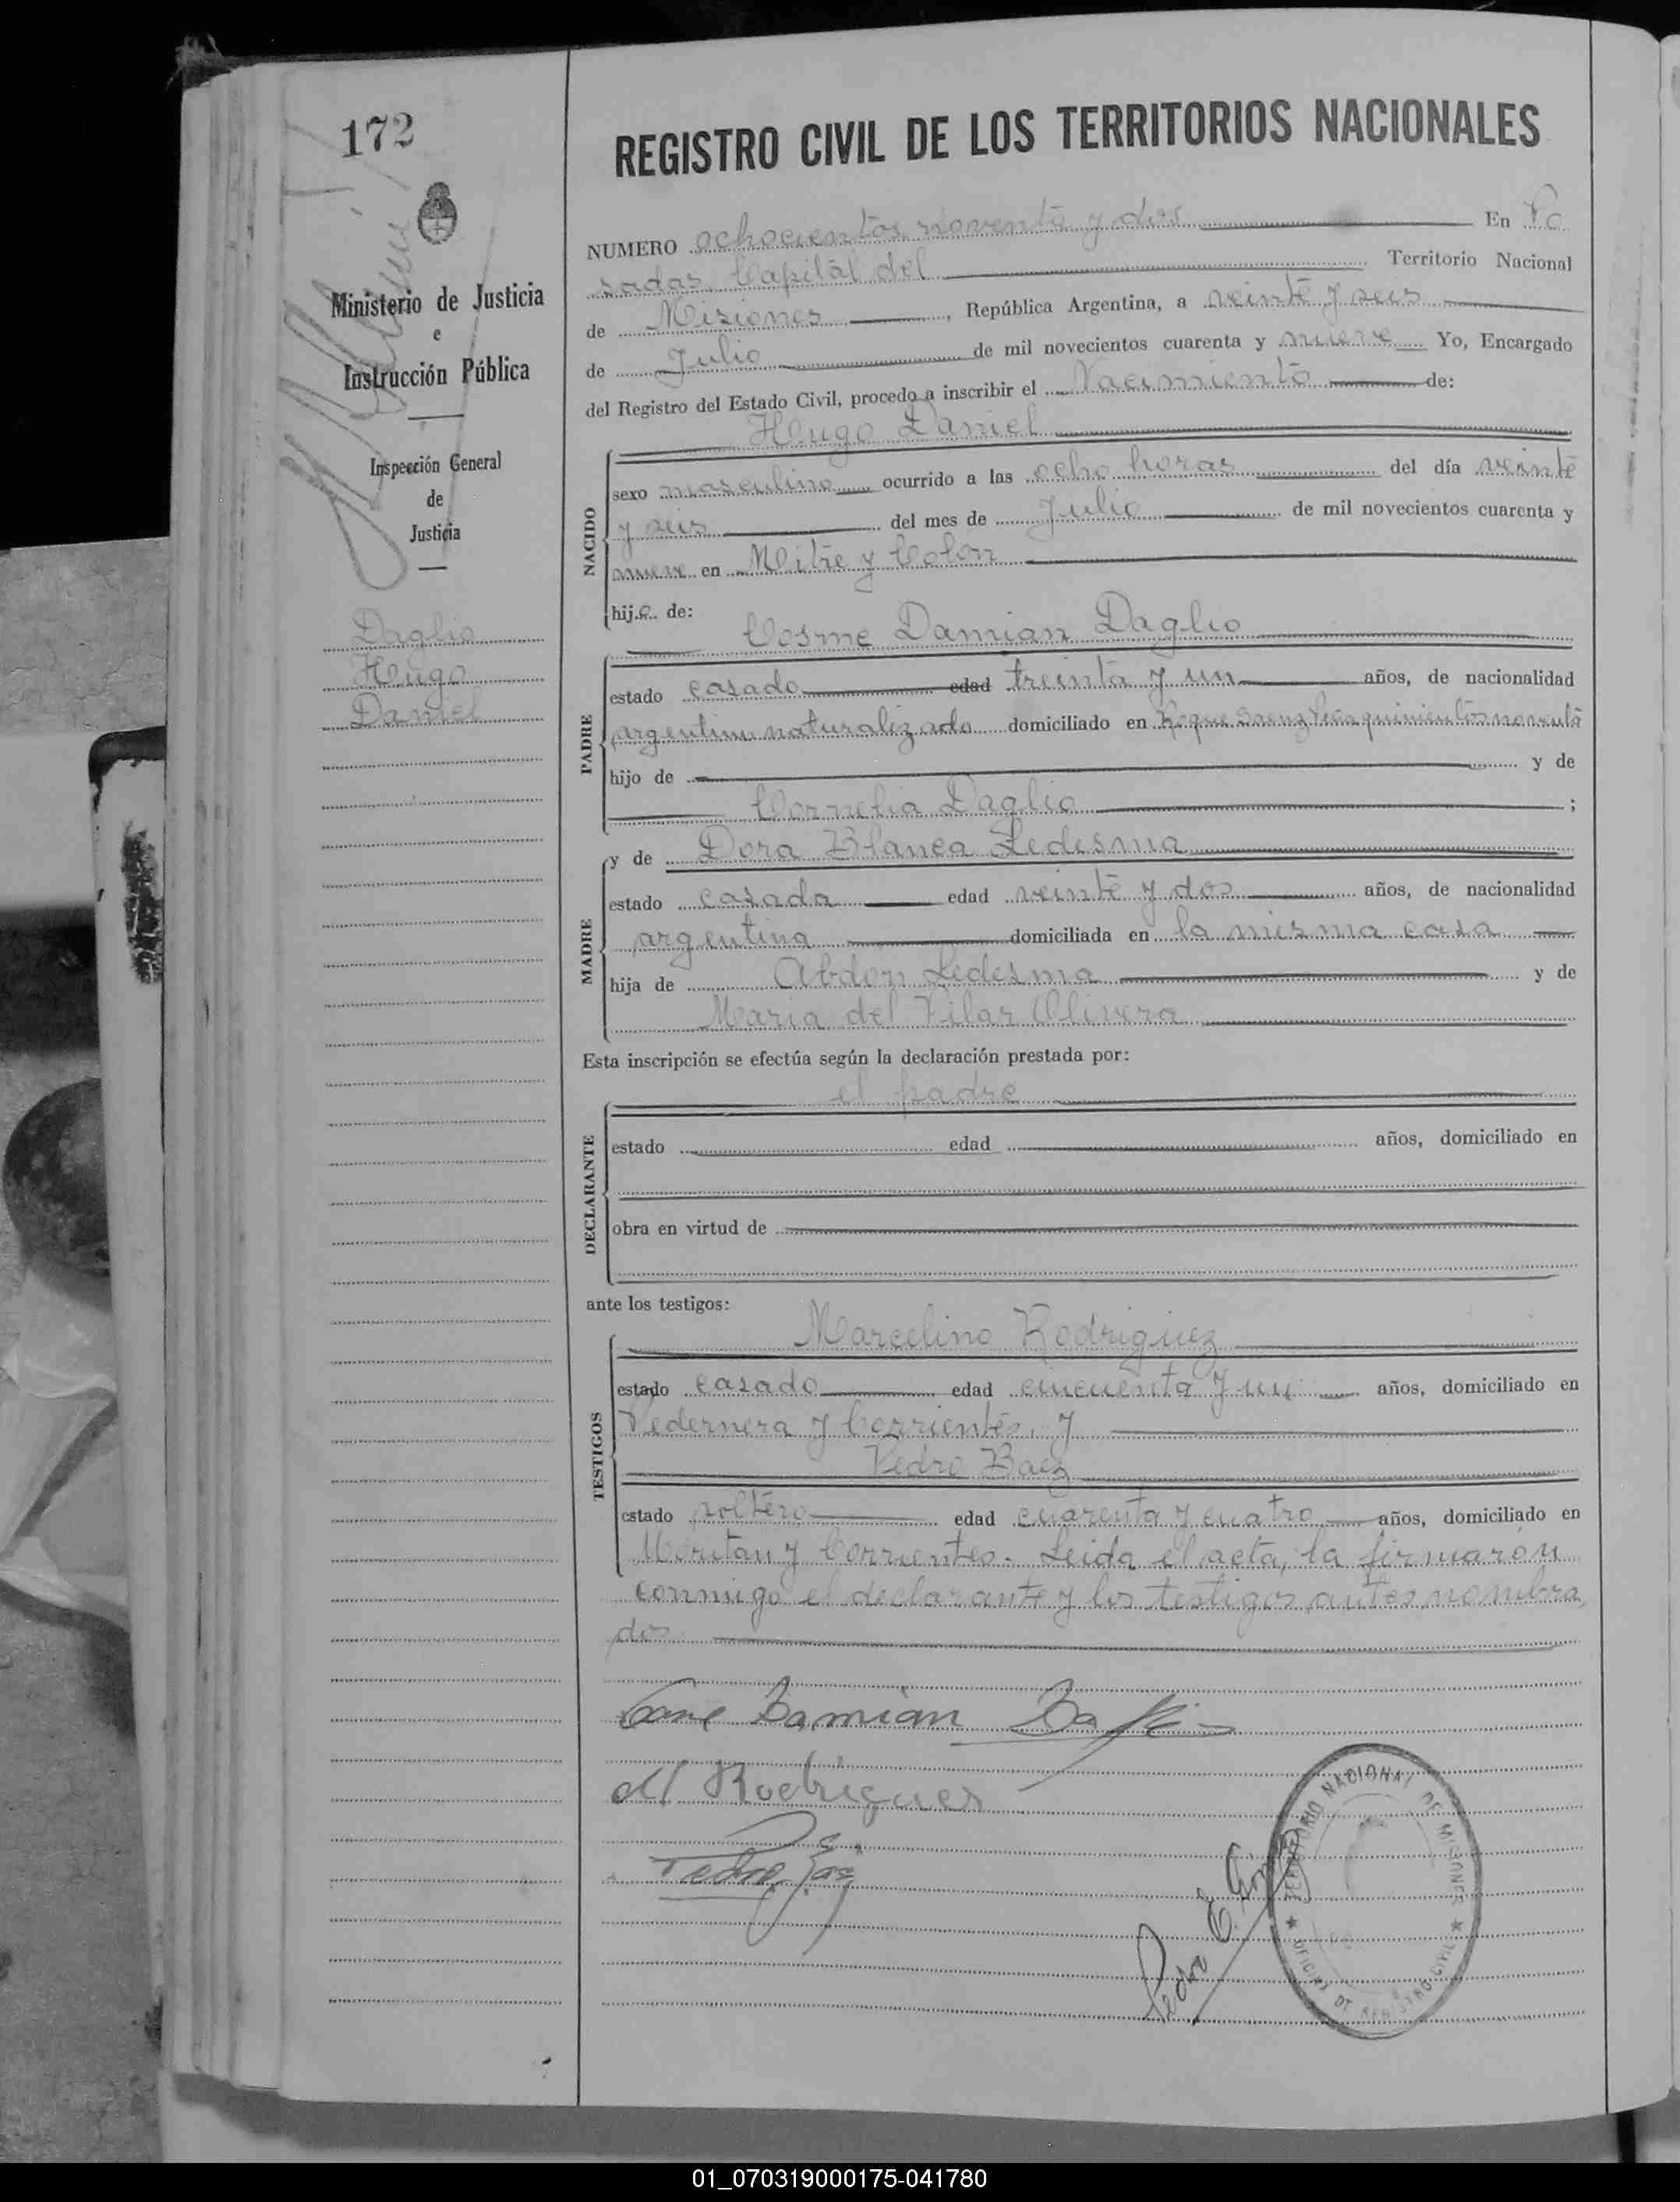 172
Ministerio de Justicia
e
Instrucción Pública
Inspección General
de
Justicia
Daglio
Hugo
Daniel
REGISTRO CIVIL DE LOS TERRITORIOS NACIONALES
NUMERO ochocientos noventa y dos En Po
sadas Capital del Territorio Nacional
de Misiones, República Argentina, a veinte y seis
de Julio de mil novecientos cuarenta y nueve Yo, Encargado
del Registro del Estado Civil, procedo a inscribir el Nacimiento de:
Hugo Daniel
NACIDO
sexo masculino ocurrido a las ocho horas del día veinte
y seis del mes de Julio de mil novecientos cuarenta y
nueve en Mitre y Colon
hijo de:
Cosme Damian Daglio
PADRE
estado casado edad treinta y un años, de nacionalidad
argentino naturalizado domiciliado en Roque Saenz Peña quinientos noventa
hijo de y de
Cornelia Daglio ;
MADRE
y de Dora Blanca Ledesma
estado casada edad veinte y dos años, de nacionalidad
argentina domiciliada en la misma casa
hija de Abdon Ledesma y de
Maria del Pilar Olivera
Esta inscripción se efectúa según la declaración prestada por:
el padre
DECLARANTE
estado edad años, domiciliado en
obra en virtud de
ante los testigos:
Marcelino Rodriguez
TESTIGOS
estado casado edad cincuenta y un años, domiciliado en
Pedernera y Corrientes, y
Pedro Baez
estado soltero edad cuarenta y cuatro años, domiciliado en
y Corrientes. Leida el acta, la firmarón
conmigo el declarante y los testigos antes nombra
dos
Cosme Damian Daglio
M Rodriguez
Pedro Baez
Pedro E.
TERRITORIO NACIONAL DE MISIONES
OFICINA DE REGISTRO CIVIL
01_070319000175-041780